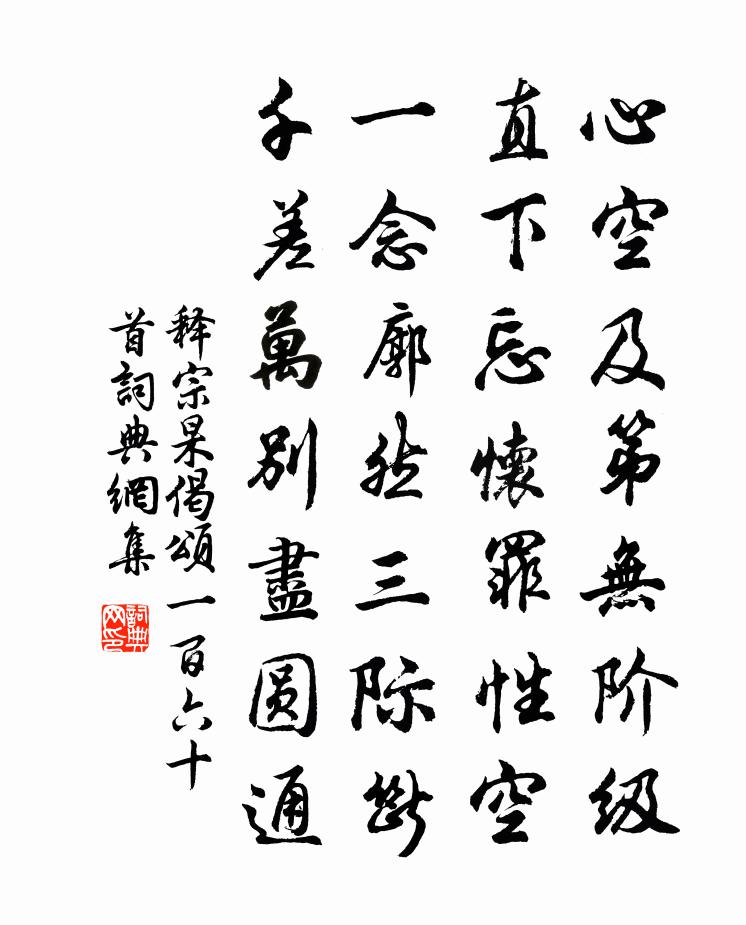 心空及第無阶级
直下忘懷罪性空
一念廓然三际斷
千差萬别盡圆通
释宗杲偈頌一百六十
首詞典網集
詞典網印